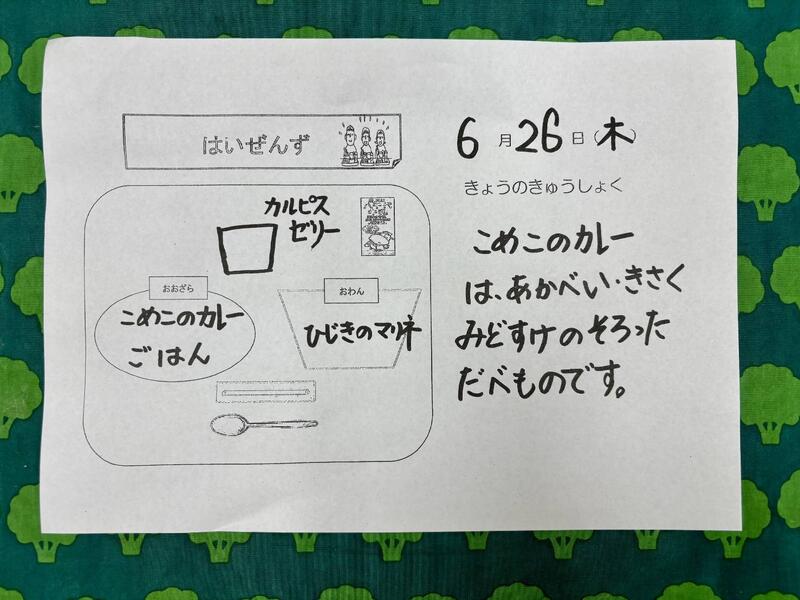 はいぜんず
カルピス
ゼリー
おおざら
こめこのカレー
ごはん
おわん
ひじきのマリネ
6月26日(木)
きょうのきゅうしょく
こめこのカレー
は、あかべい・きさく
みどすけのそろった
だべものです。